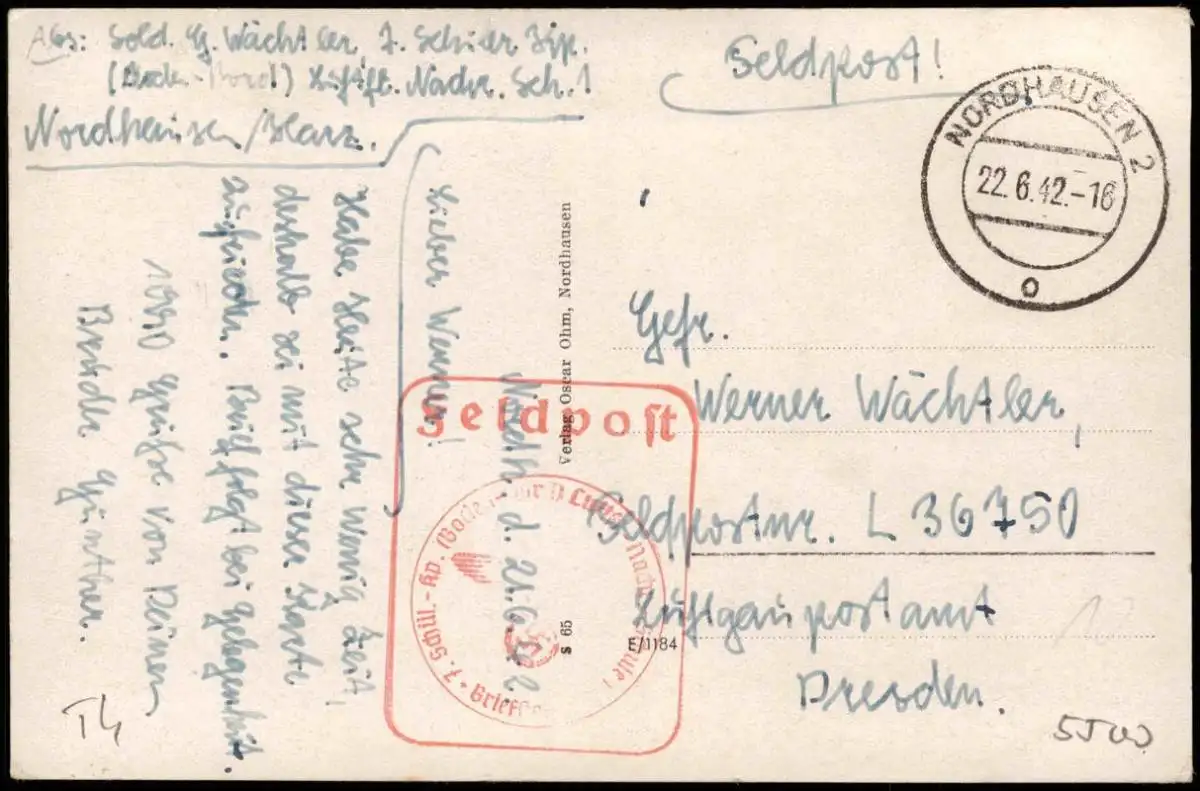 Abs: Sold. G. Wächtler 7. Schüler Kp.
(Boden-Bord) Luftft. Nachr. Sch. 1
Nordhausen/Harz.
Feldpost!
NORDHAUSEN 2
22.6.42.-16
o
Nordh. d. 21.6.42
Lieber Werner!
Habe heute sehr wenig Zeit,
deshalb sei mit dieser Karte
zufrieden. Brief folgt bei Gelegenheit.
1000 Grüße von Deinem
Bruder Günther.
Verlag Oscar Ohm, Nordhausen
S 65
E/1184
Feldpost
7. Schül.-Kp. (Bode
Briefst
Gefr.
Werner Wächtler,
Feldpostnr. L 36750
Luftgaupostamt
Dresden.
T4
12